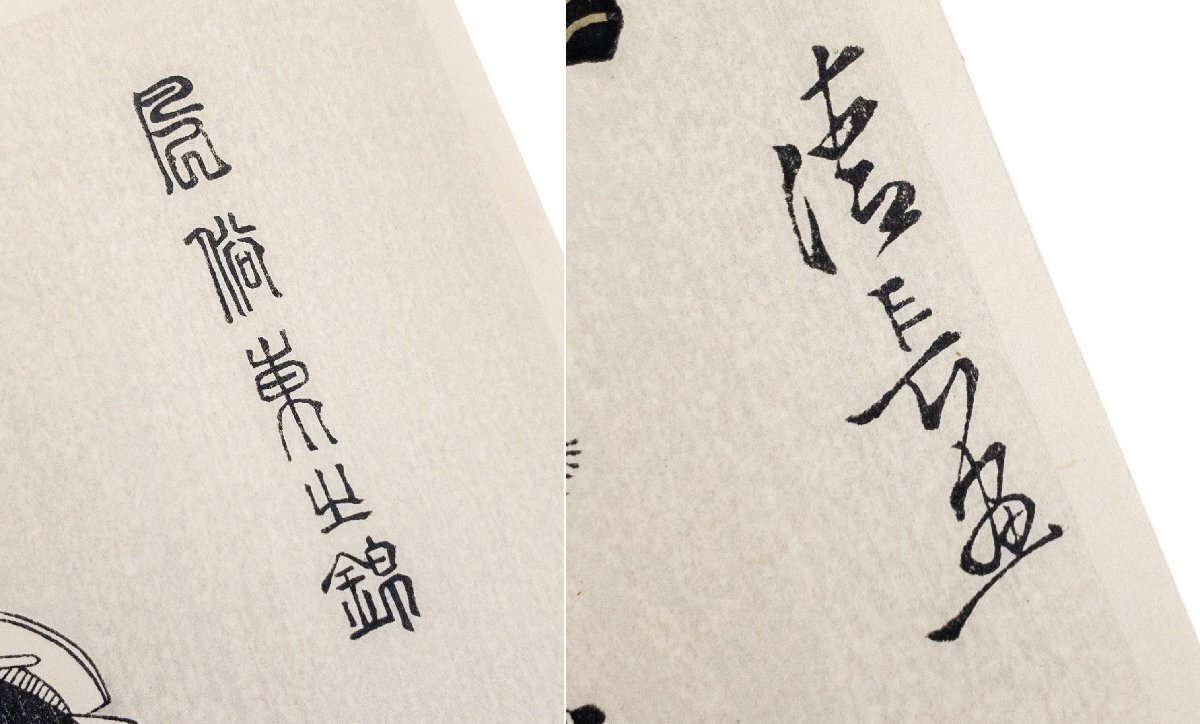 風俗東之錦
清長画